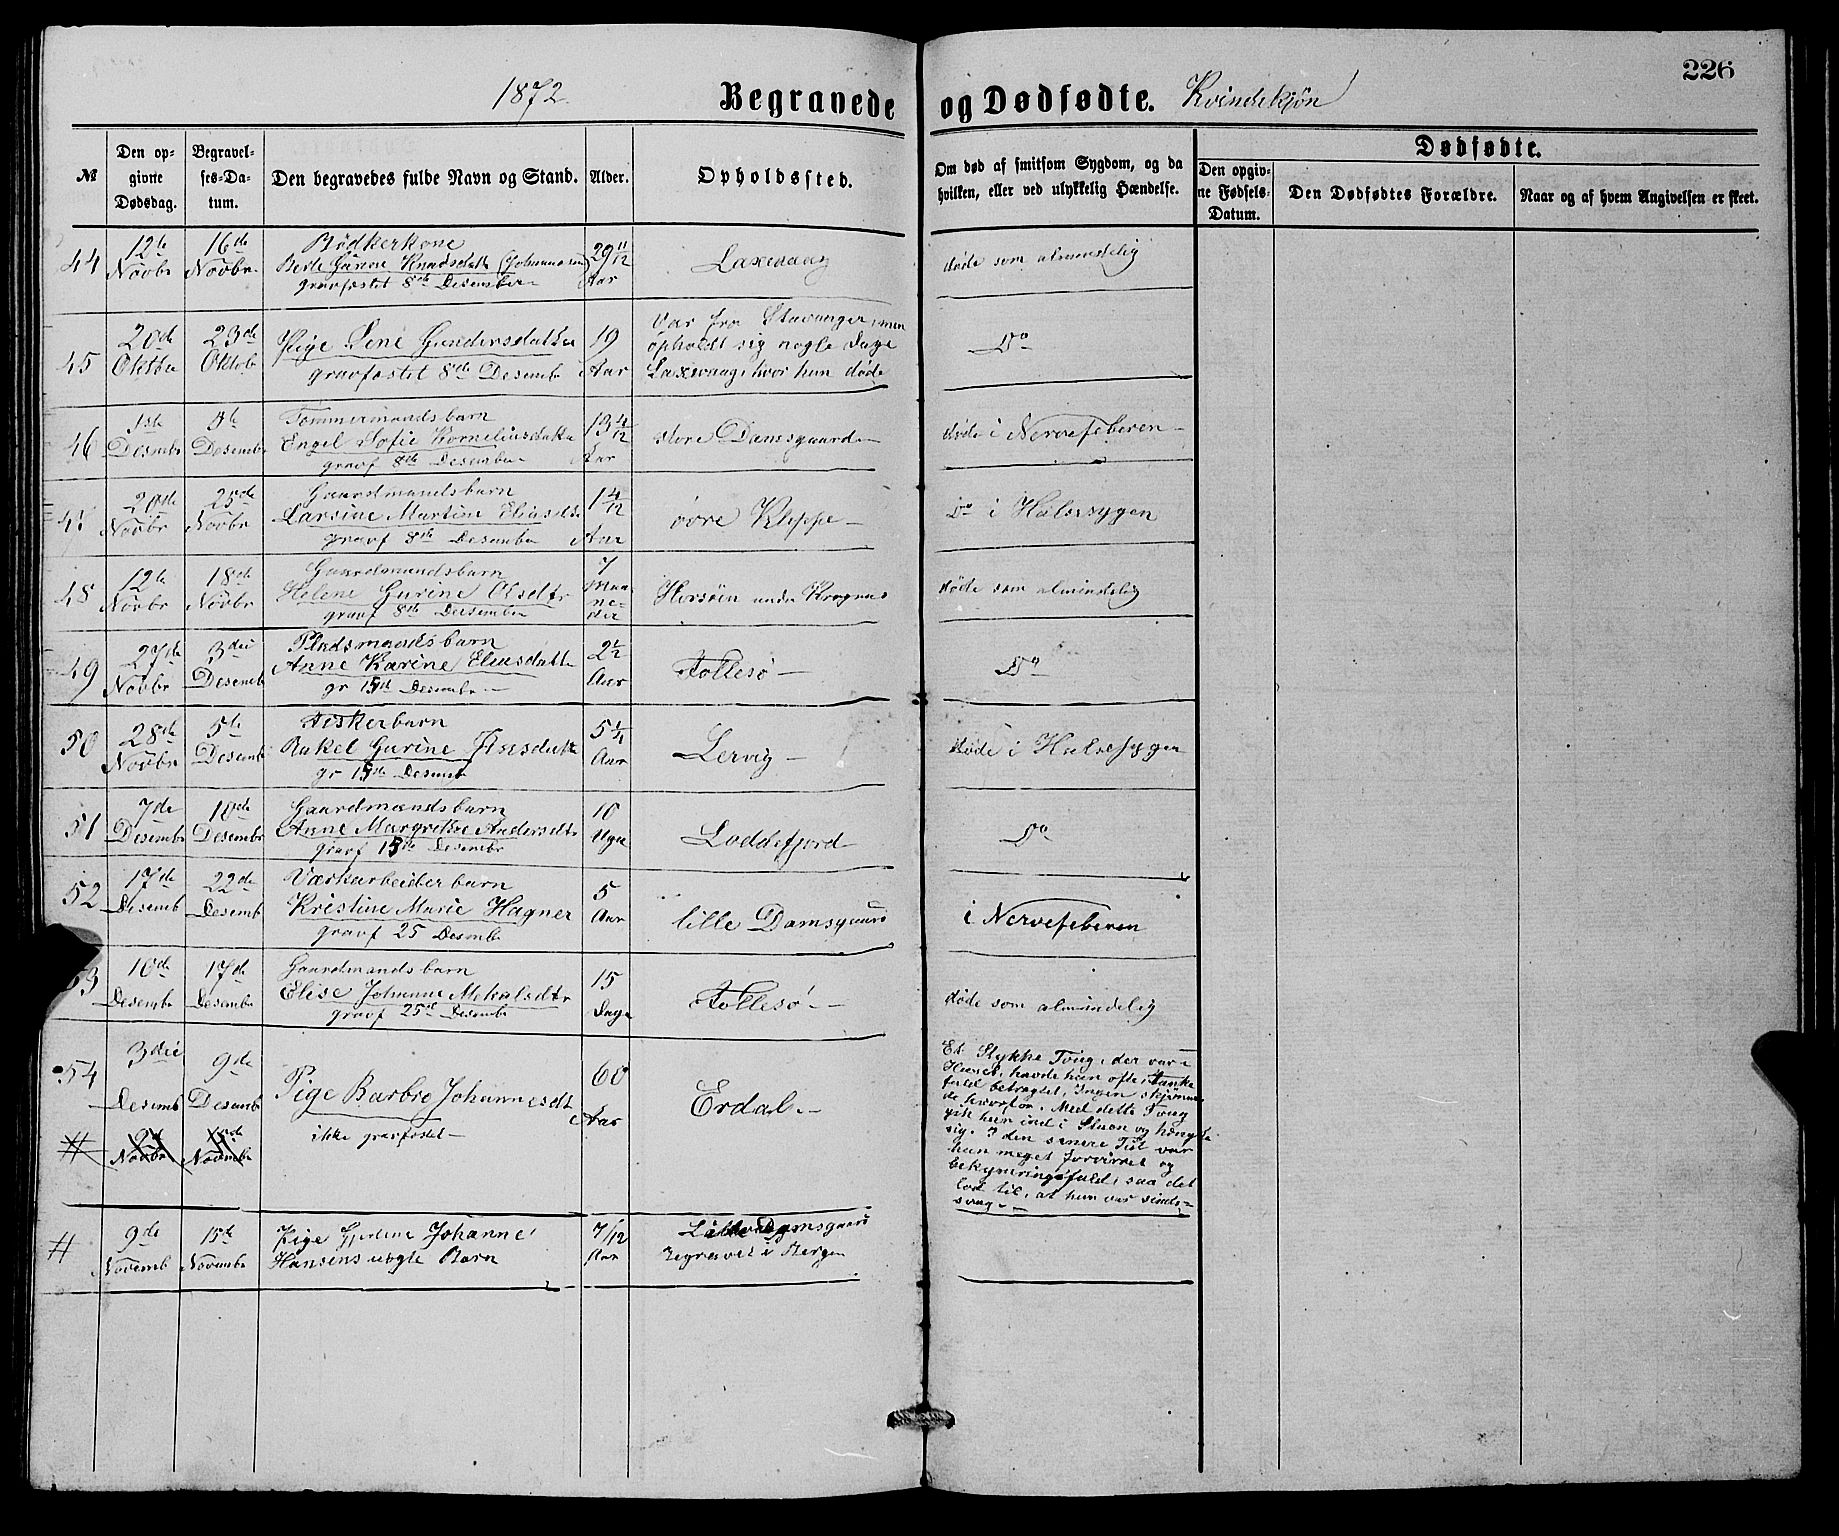 226
1872. Begravede og Dødfødte. Kvindekjøn
№ Den opgivne Dødsdag. Begravelses-Datum. Den begravedes fulde Navn og Stand. Alder. Opholdssted. Om død af smitsom Sygdom, og da hvilken, eller ved ulykkelig Hændelse. Dødfødte. Den opgivne Fødsels-Datum. Den Dødfødtes Forældre. Naar og af hvem Angivelsen er skeet.
44 12te Novbr 16de Novbr. Bødkerkone
Berte Gurine Knudsdatt (Johannesen) 29 11/12 Aar Laxevaag døde som almindelig
gravfæstet 8de Desember
45 20de Oktbr 23de Oktob Pige Lene Gundersdatter 19 Aar
gravfæstet 8de Desemb
Var fra Stavanger, men
opholdt sig nogle Dage
Laxevaag, hvor hun døde
Do
46 1ste Desembr 8de Desembr Tømmermandsbarn
Engel Sofie Korneliusdatter 13 4/12 Aar store Damsgaard døde i Nervefeberen
gravf 8de Desember
47 20de Novbr 25de Novbr Gaardmandsbarn
Larsine Martine Eliasdtr 1 4/12 Aar øvre Kleppe Do i Halssygen
gravf 8de Desember
48 12te Novbr 18de Novbr Gaardmandsbarn
Helene Gurine Olsdtr 7 Maaneder under døde som almindelig
gravf 8de Desember
49 27de Novbr 3die Desemb Pladsmandsbarn
Anne Karine Eliasdatt 2 1/2 Aar Follesø Do
gr 15de Desembr
50 28de Novbr 5te Desemb Fiskerbarn
Rakel Gurine Aar Lervig døde i Halssygen
gr 15de Desemb
51 7de Desembr 10de Desembr Gaardmandsbarn
Anne Margrethe Andersdtr 10 Uger Loddefjord Do
gravf 15de Desembr
52 17de Desemb 22de Desemb Værkarbeiderbarn
Kristine Marie Hagner 5 Aar lille Damsgaard i Nervefeberen
gravf 25 Desemb
53 10de Desemb 17de Desembr Gaardmandsbarn
Elise Johanne Mikalsdtr 15 Dage Follesø døde som almindelig
gravf 25de Desemb
54 3die Desemb 9de Desembr Pige Barbro Johannesdt 60 Aar Erdal
ikke gravfæstet
Et Stykke Toug, der var i
Huset, havde hun ofte tanke
fuld betragtet, Ingen skjønne
de hvorfor. Med dette Toug
gik hun ind i Stuen og hængte
sig. I den senere Tid var
hun meget forvirret og
bekymringsfuld, saa det
lod til, at hun var sinds-
svag.
# 9de Novbr. 15de Novembr
# 9de Novemb 15de Novembr Pige Johanne
Hansens uægte Barn 7/12 Aar Lille Damsgaard
begravet i Bergen